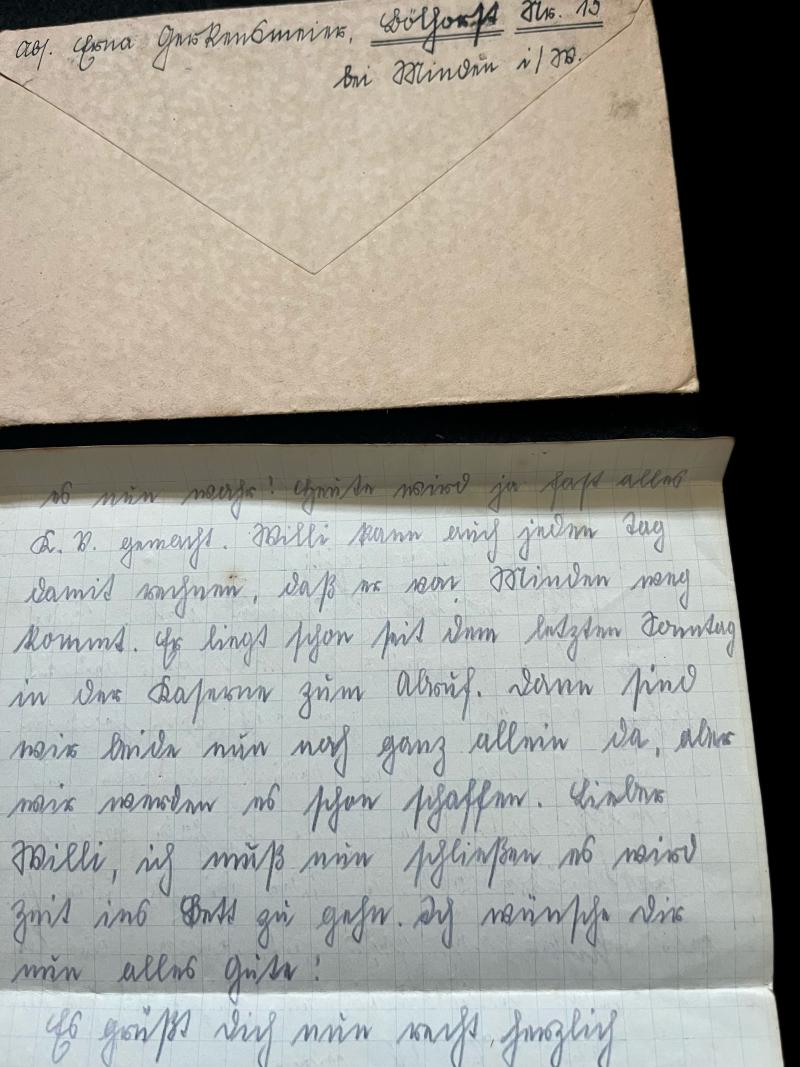 Abs. Erna Gerkensmeier, Bölhorst Nr. 19
bei Minden i/W.
es nun wahr! Heute wird ja fast alles
K. V. gemacht. Willi kann auch jeden Tag
damit rechnen, daß er von Minden weg
kommt. Er liegt schon seit dem letzten Sonntag
in der Kaserne zum Abruf. Dann sind
wir beide nun noch ganz allein da, aber
wir werden es schon schaffen. Lieber
Willi, ich muß nun schließen es wird
Zeit ins Bett zu gehn. Ich wünsche dir
nun alles Gute!
Es grüßt dich nun recht herzlich